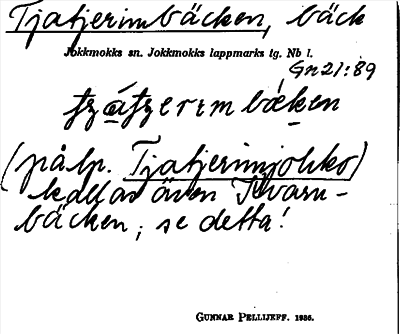 Tjatjerimbäcken, bäck
Jokkmokks sn. Jokkmokks lappmarks tg. Nb l.
Gn 21:89
tzátzerɪm bäken
(på lp. Tjatjerimjokko)
kallas även Kvarn-
bäcken; se detta!
GUNNAR PELLIJEFF. 1936.